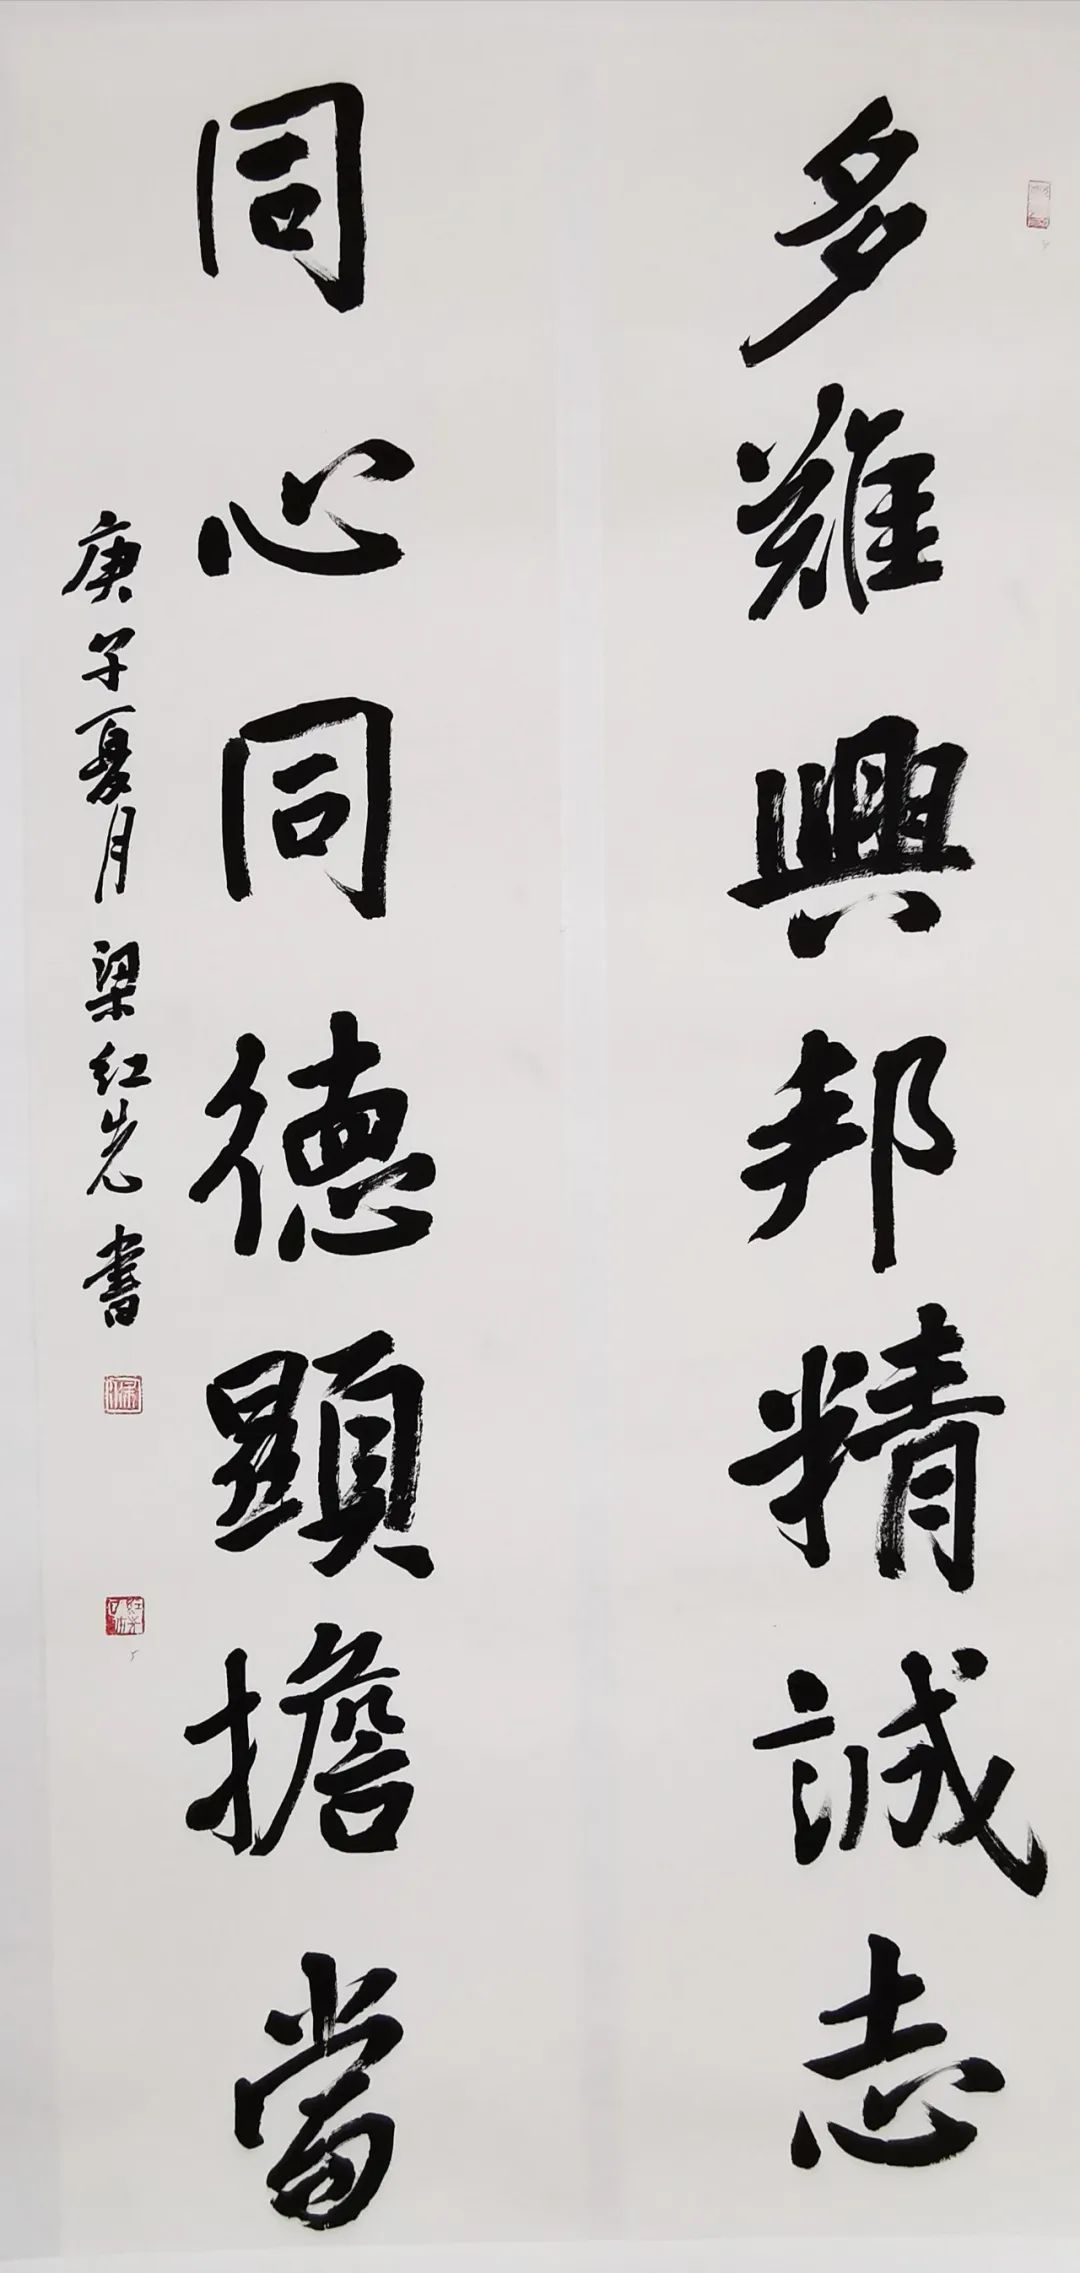 多難興邦精誠志
同心同德顯擔當
庚子夏月梁紅先書